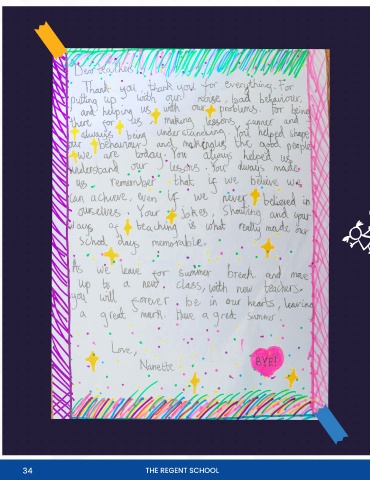 Dear teachers,
Thank you, thank you for everything. For
putting up with our noise, bad behaviour,
and helping us with our problems. For being
there for us, making lessons funner and
always being understanding. You helped shape
our behaviour and making us the good people
we are today. You always helped us
understand our lessons. You always made
us remember that if we believe we
can achieve, even if we never believed in
ourselves. Your jokes, shouting and your
ways of teaching is what really made our
school days memorable.
As we leave for summer break and move
up to a new class, with new teachers,
you will forever be in our hearts, leaving
a great mark. Have a great summer.
Love,
Nanette
BYE!
34
THE REGENT SCHOOL